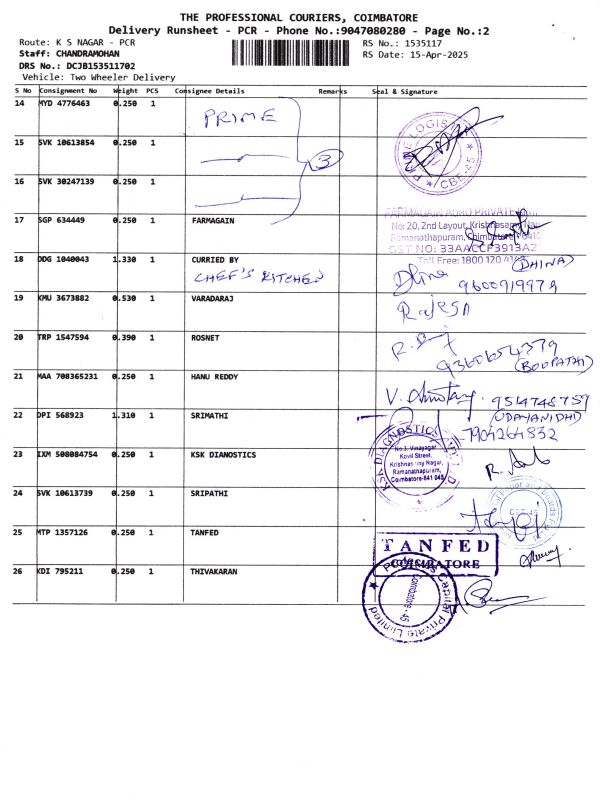 THE PROFESSIONAL COURIERS, COIMBATORE
Delivery Runsheet - PCR - Phone No.:9047080280 - Page No.:2
Route: K S NAGAR - PCR RS No.: 1535117
Staff: CHANDRAMOHAN RS Date: 15-Apr-2025
DRS No.: DCJB153511702
Vehicle: Two Wheeler Delivery
S No Consignment No Weight PCS Consignee Details Remarks Seal & Signature
14 MYD 4776463 0.250 1 PRIME
15 SVK 10613854 0.250 1
3
CBE-45
16 SVK 30247139 0.250 1
17 SGP 634449 0.250 1 FARMAGAIN
FARMAGAIN AGRO PRIVATE
No: 20, 2nd Layout, Krishnasamy
Ramanathapuram, Coimbatore
GST NO: 33AACCF3913A2
Toll Free: 1800 120
18 DDG 1040043 1.330 1 CURRIED BY
CHEF'S KITCHEN
(DHINA)
9600919979
19 KMU 3673882 0.530 1 VARADARAJ Rajesh
20 TRP 1547594 0.390 1 ROSNET
9360654379
(BOOPATHI)
21 MAA 708365231 0.250 1 HANU REDDY
9514748759
22 DPI 568923 1.310 1 SRIMATHI (UDAYANIDHI)
7904264832
23 IXM 508084754 0.250 1 KSK DIANOSTICS
KSK DIAGNOSTICS
No 3, Vinayagar
Kovil Street,
Krishnasamy Nagar,
Ramanathapuram,
Coimbatore-641 045
24 SVK 10613739 0.250 1 SRIPATHI
CBE-45
25 MTP 1357126 0.250 1 TANFED
TANFED
COIMBATORE
26 KDI 795211 0.250 1 THIVAKARAN
Capital Private Limited
Coimbatore - 45